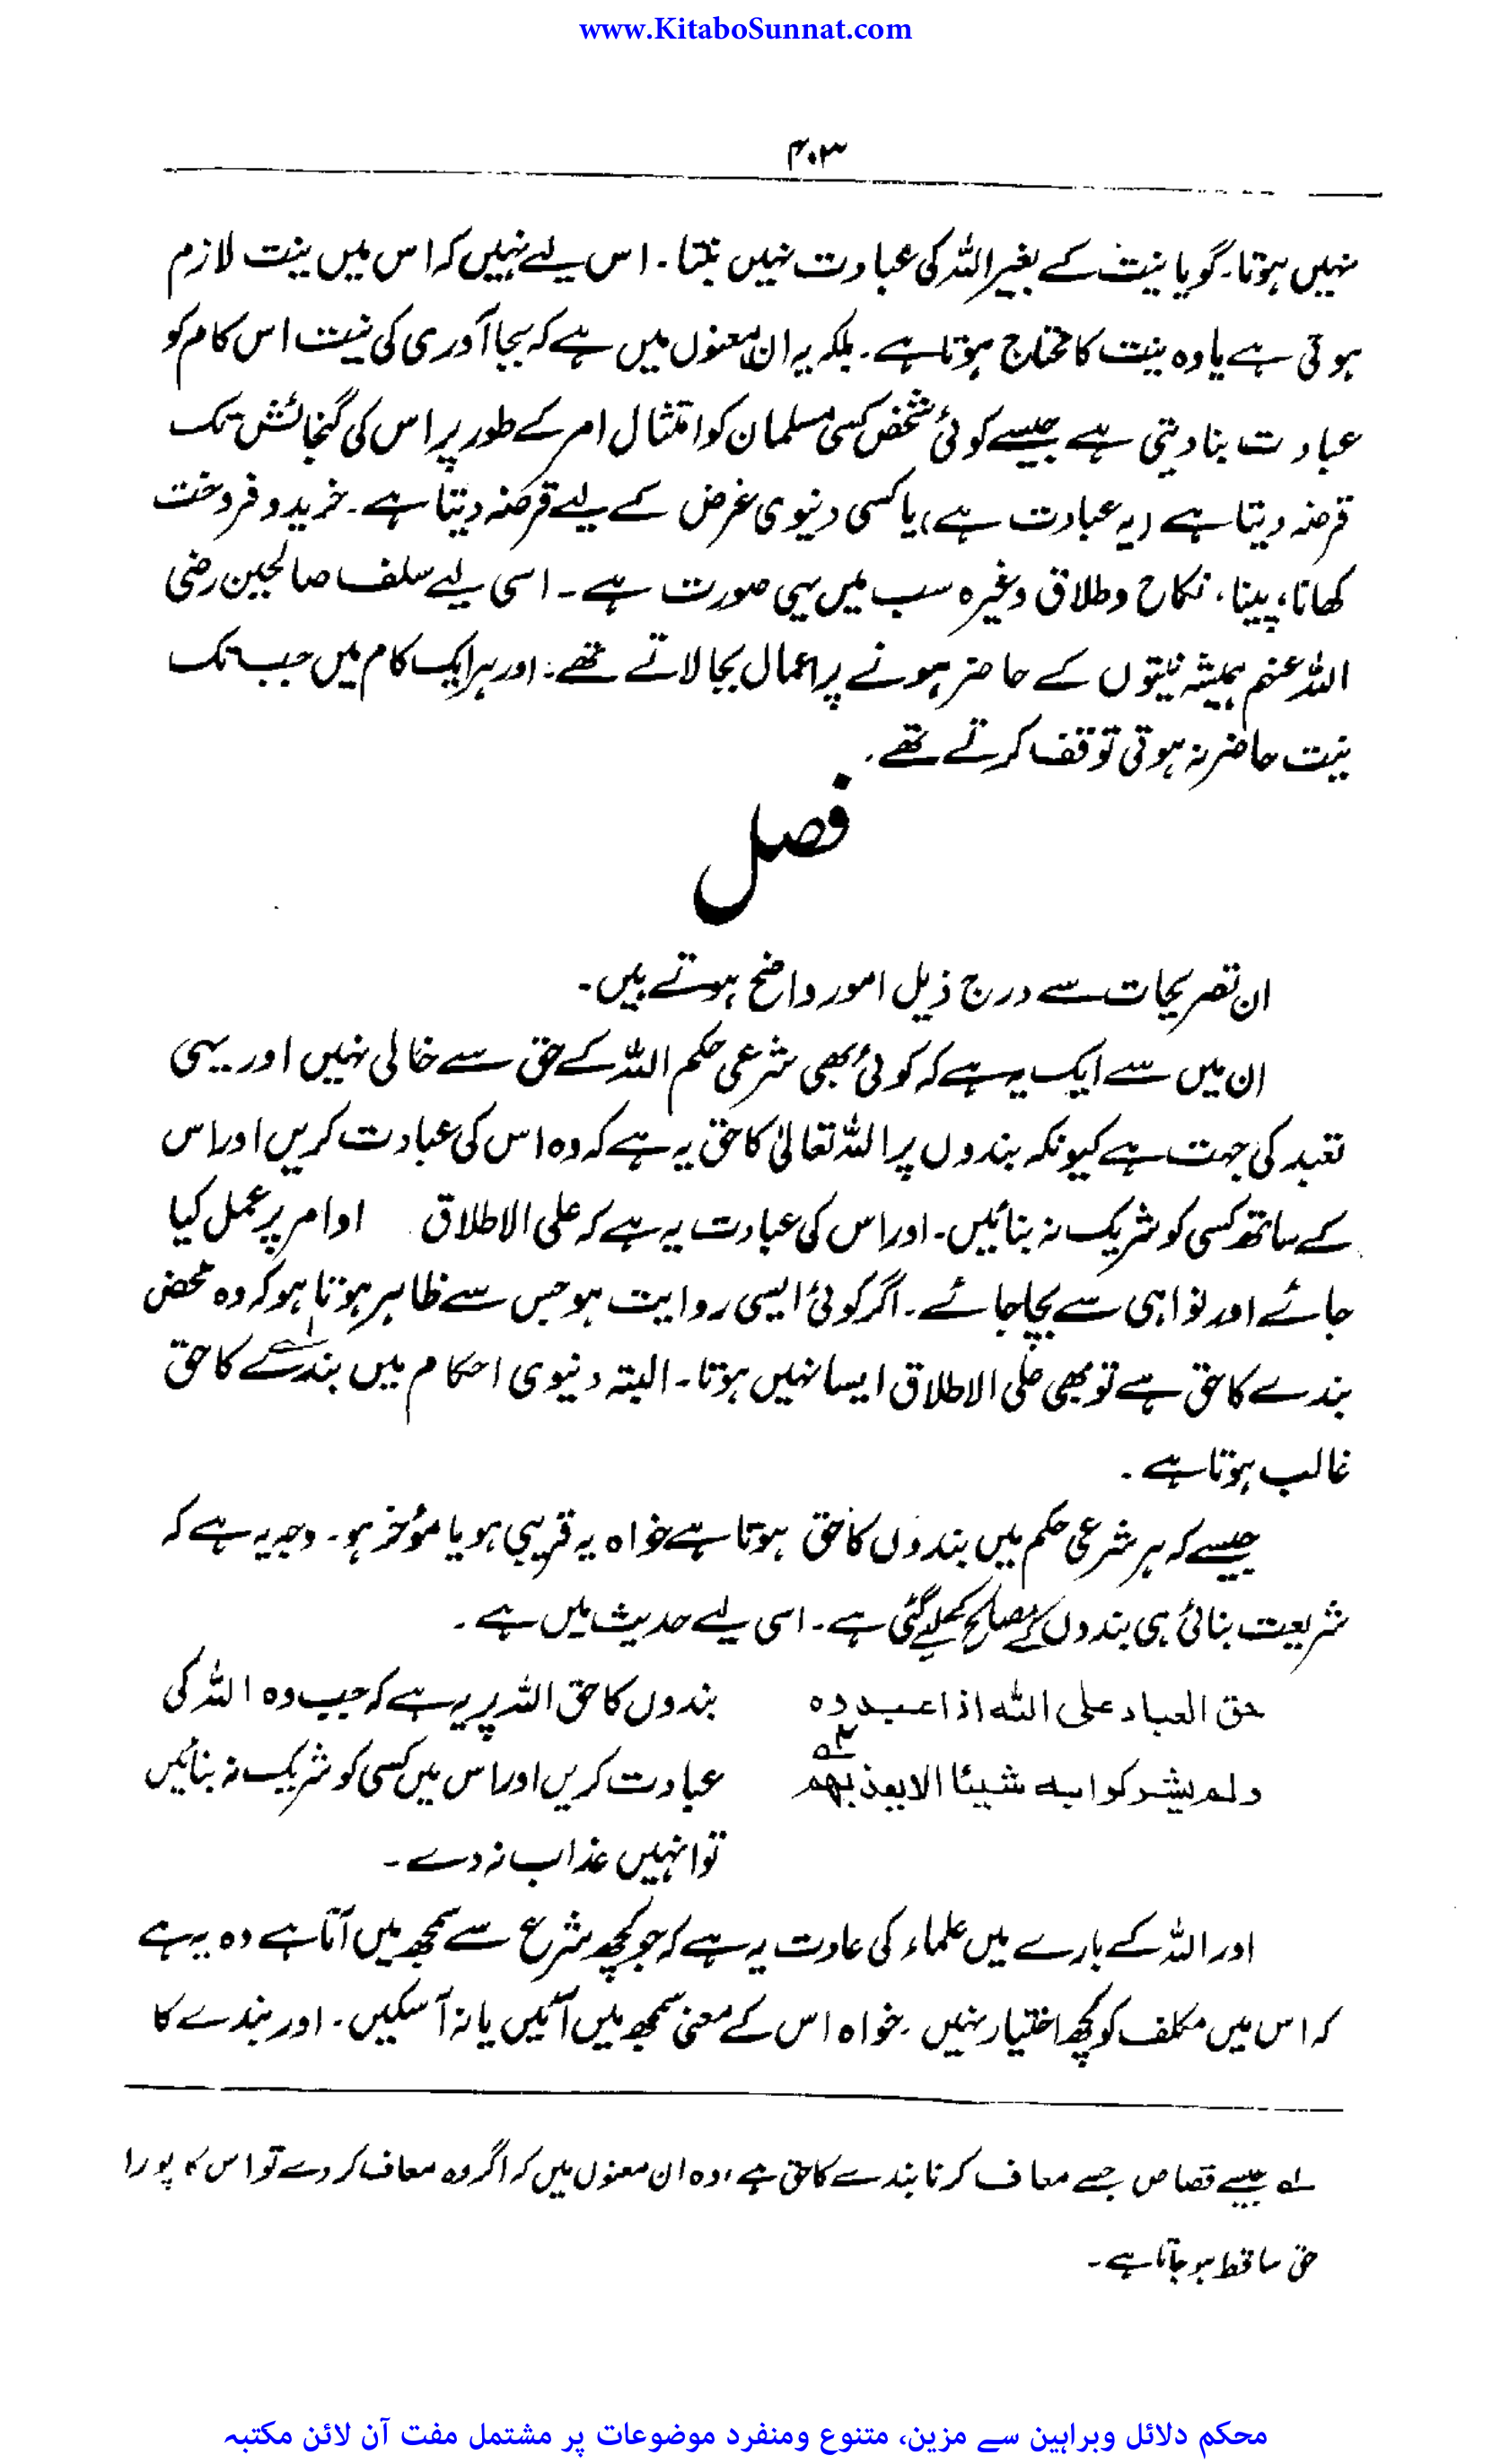 www.KitaboSunnat.com
۴۰۳
نہیں ہوتا۔ گویا نیت کے بغیر اللہ کی عبادت نہیں بنتا۔ اس لیے نہیں کہ اس میں نیت لازم
ہوتی ہے یا وہ نیت کا محتاج ہوتا ہے۔ بلکہ یہ ان معنوں میں ہے کہ بجا آوری کی نیت اس کام کو
عبادت بنا دیتی ہے جیسے کوئی شخص کسی مسلمان کو امتثال امر کے طور پر اس کی گنجائش تک
قرضہ دیتا ہے (یہ عبادت ہے) یا کسی دنیوی غرض کے لیے قرضہ دیتا ہے۔ خرید و فروخت
کھانا، پینا، نکاح و طلاق وغیرہ سب میں یہی صورت ہے۔ اسی لیے سلف صالحین رضی
اللہ عنہم ہمیشہ نیتوں کے حاضر ہونے پر اعمال بجا لاتے تھے۔ اور ہر ایک کام میں جب تک
نیت حاضر نہ ہوتی توقف کرتے تھے۔
فصل
ان تصریحات سے درج ذیل امور واضح ہوتے ہیں۔
ان میں سے ایک یہ ہے کہ کوئی بھی شرعی حکم اللہ کے حق سے خالی نہیں اور یہی
تعبد کی جہت ہے کیونکہ بندوں پر اللہ تعالیٰ کا حق یہ ہے کہ وہ اس کی عبادت کریں اور اس
کے ساتھ کسی کو شریک نہ بنائیں۔ اور اس کی عبادت یہ ہے کہ علی الاطلاق اوامر پر عمل کیا
جائے اور نواہی سے بچا جائے۔ اگر کوئی ایسی روایت ہو جس سے ظاہر ہوتا ہو کہ وہ محض
بندے کا حق ہے تو بھی علی الاطلاق ایسا نہیں ہوتا۔ البتہ دنیوی احکام میں بندے کا حق
غالب ہوتا ہے۔
جیسے کہ ہر شرعی حکم میں بندوں کا حق ہوتا ہے خواہ یہ قریبی ہو یا مؤخر ہو۔ وجہ یہ ہے کہ
شریعت بنائی ہی بندوں کے مصالح کے لیے گئی ہے۔ اسی لیے حدیث میں ہے۔
حق العباد علی اللہ اذا عبدوہ بندوں کا حق اللہ پر یہ ہے کہ جب وہ اللہ کی
ولم یشرکوا بہ شیئا الا یعذبہم ۲ہ عبادت کریں اور اس میں کسی کو شریک نہ بنائیں
تو انہیں عذاب نہ دے۔
اور اللہ کے بارے میں علماء کی عادت یہ ہے کہ جو کچھ شرع سے سمجھ میں آتا ہے وہ یہ ہے
کہ اس میں مکلف کو کچھ اختیار نہیں۔ خواہ اس کے معنی سمجھ میں آئیں یا نہ آ سکیں۔ اور بندے کا
۱ہ جیسے قصاص جسے معاف کرنا بندے کا حق ہے، وہ ان معنوں میں کہ اگر وہ معاف کر دے تو اس کا پورا
حق ساقط ہو جاتا ہے۔
محکم دلائل وبراہین سے مزین، متنوع ومنفرد موضوعات پر مشتمل مفت آن لائن مکتبہ